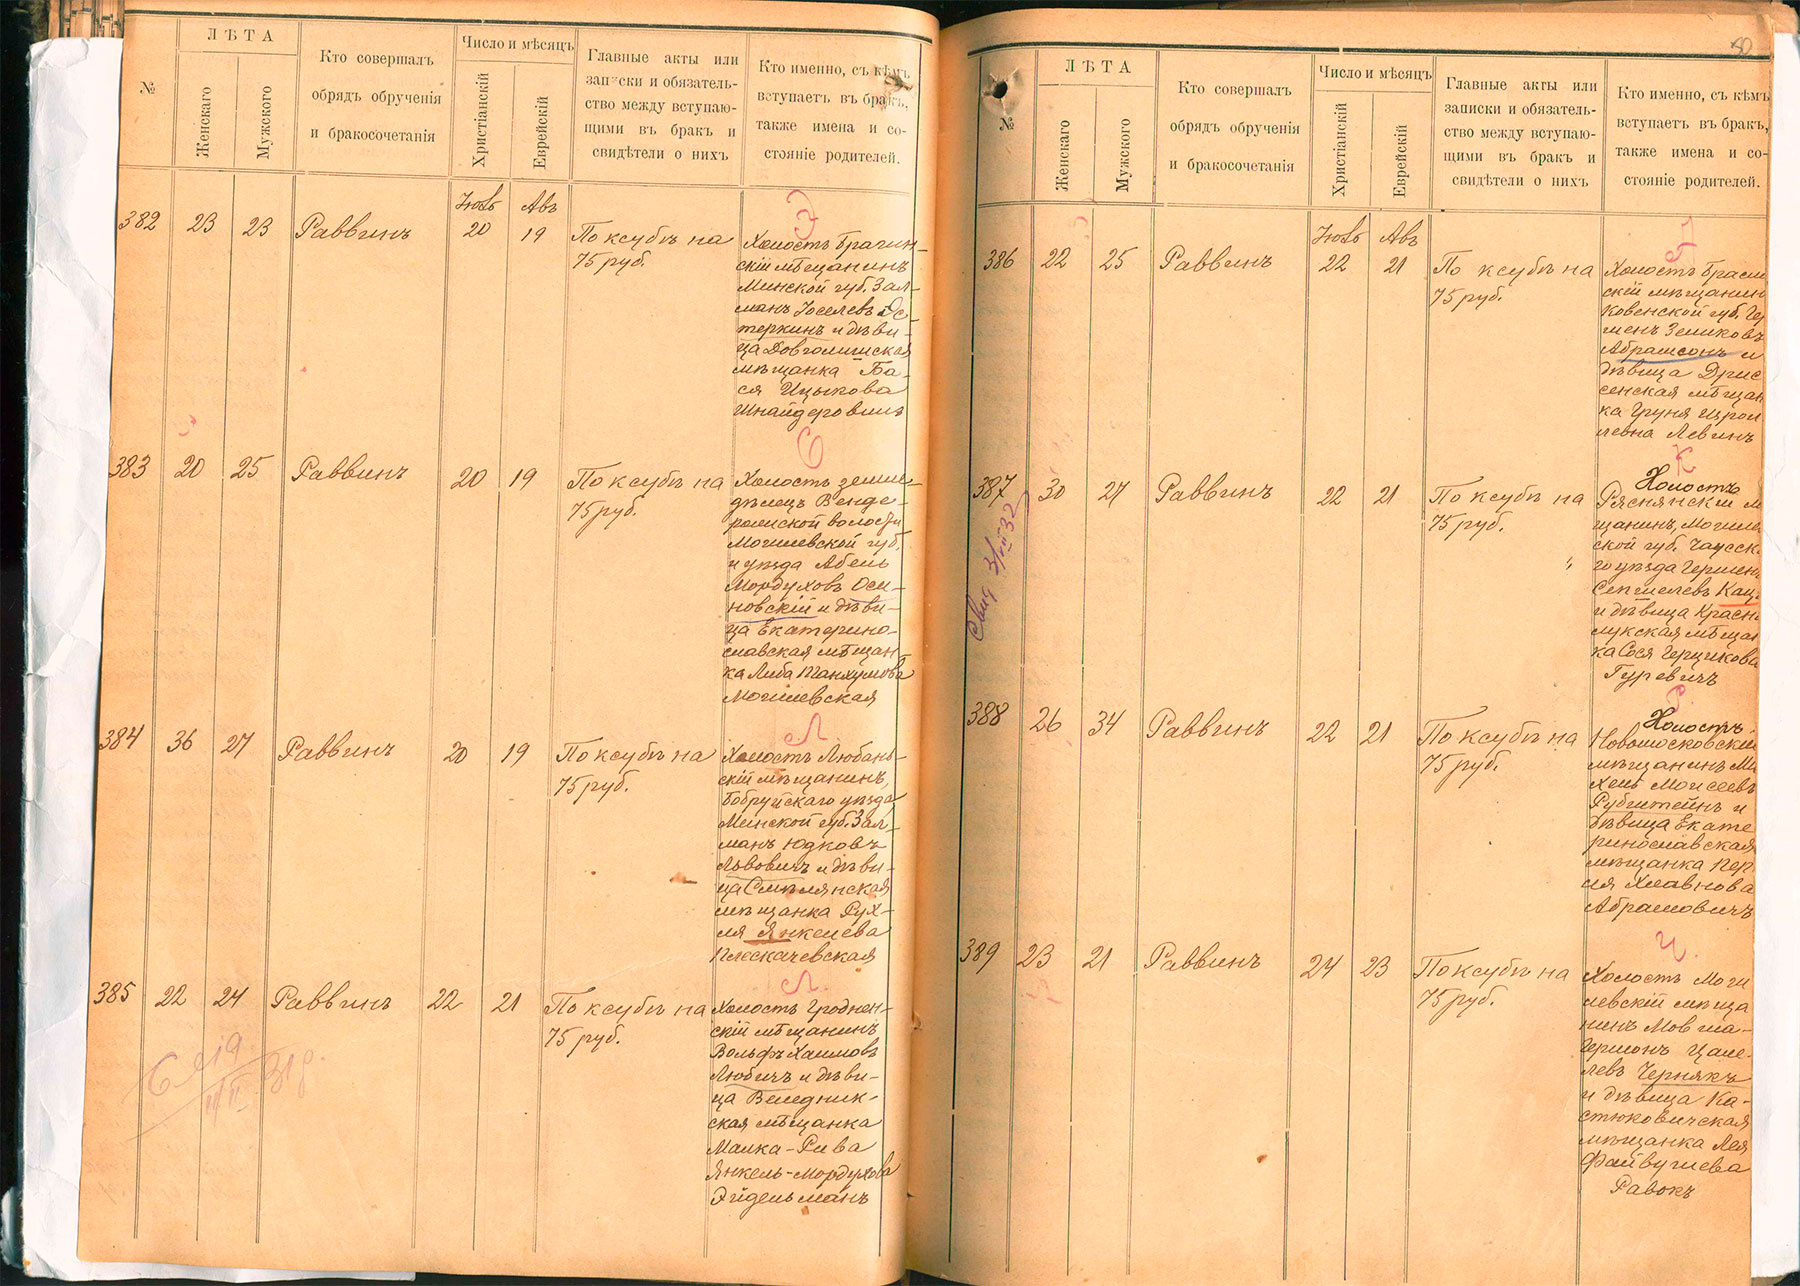 №
ЛѢТА
Женскаго
Мужского
Кто совершалъ
обрядъ обрученія
и бракосочетанія
Число и мѣсяцъ
Христіанскій
Еврейскій
Главные акты или
записки и обязатель-
ство между вступаю-
щими въ бракъ и
свидѣтели о нихъ
Кто именно, съ кѣмъ
вступаетъ въ бракъ,
также имена и со-
стояніе родителей.
382
23
23
Раввинъ
Іюль
20
Авъ
19
По ксубѣ на
75 руб.
Холостъ Брагин-
скій мѣщанинъ
Минской губ. Зал-
манъ Іоселевъ Ос-
теркинъ и дѣви-
ца Довголишская
мѣщанка Ба-
ся Ицыкова
Шнайдеровичъ
383
20
25
Раввинъ
20
19
По ксубѣ на
75 руб.
С
Холостъ земле-
дѣлецъ Венде-
рожской волости
Могилевской губ.
и уѣзда Абель
Мордуховъ Оси-
новскій и дѣви-
ца Екатерино-
славская мѣщан-
ка Либа Танхумова
Могилевская
384
36
27
Раввинъ
20
19
По ксубѣ на
75 руб.
Л.
Холостъ Любань-
скій мѣщанинъ,
Бобруйскаго уѣзда
Минской губ. Зал-
манъ Юдковъ
Львовичъ и дѣви-
ца Смѣлянская
мѣщанка Рух-
ля Янкелева
Плескачевская
385
22
24
Раввинъ
22
21
По ксубѣ на
75 руб.
Л.
Холостъ Гроднен-
скій мѣщанинъ
Вольфъ Хаимовъ
Любичъ и дѣви-
ца Веледник-
ская мѣщанка
Малка-Рива
Янкель-Мордухова
Эйдельманъ
№
ЛѢТА
Женскаго
Мужского
Кто совершалъ
обрядъ обрученія
и бракосочетанія
Число и мѣсяцъ
Христіанскій
Еврейскій
Главные акты или
записки и обязатель-
ство между вступаю-
щими въ бракъ и
свидѣтели о нихъ
Кто именно, съ кѣмъ
вступаетъ въ бракъ,
также имена и со-
стояніе родителей.
386
22
25
Раввинъ
Іюль
22
Авъ
21
По ксубѣ на
75 руб.
Холостъ Брасла
скій мѣщанин
Ковенской губ. Гер
менъ Зеликовъ
Абрамсонъ и
дѣвица Дрис
сенская мѣщан
ка Груня Изрои
левна Левинъ
387
30
27
Раввинъ
22
21
По ксубѣ на
75 руб.
К
Холостъ
Ряснянскій м
щанинъ, Могиле
ской губ. Чаусск
го уѣзда Гершен
Сепшелевъ Кац
и дѣвица Красно
лукская мѣщан
ка Сося Герцикова
Гуревичъ
388
26
34
Раввинъ
22
21
По ксубѣ на
75 руб.
Р
Холостъ
Новомосковскій
мѣщанинъ Ма
хель Моисеевъ
Рубштейнъ и
дѣвица Екате
ринославская
мѣщанка Пер
ля Хлавнова
Абрамовичъ
389
23
21
Раввинъ
24
23
По ксубѣ на
75 руб.
Ч.
Холостъ Моги
левскій мѣща
нинъ Мовша-
Гершонъ Цале-
левъ Чернякъ
и дѣвица Ка-
стюковичская
мѣщанка Лея
Файвушева
Равокъ